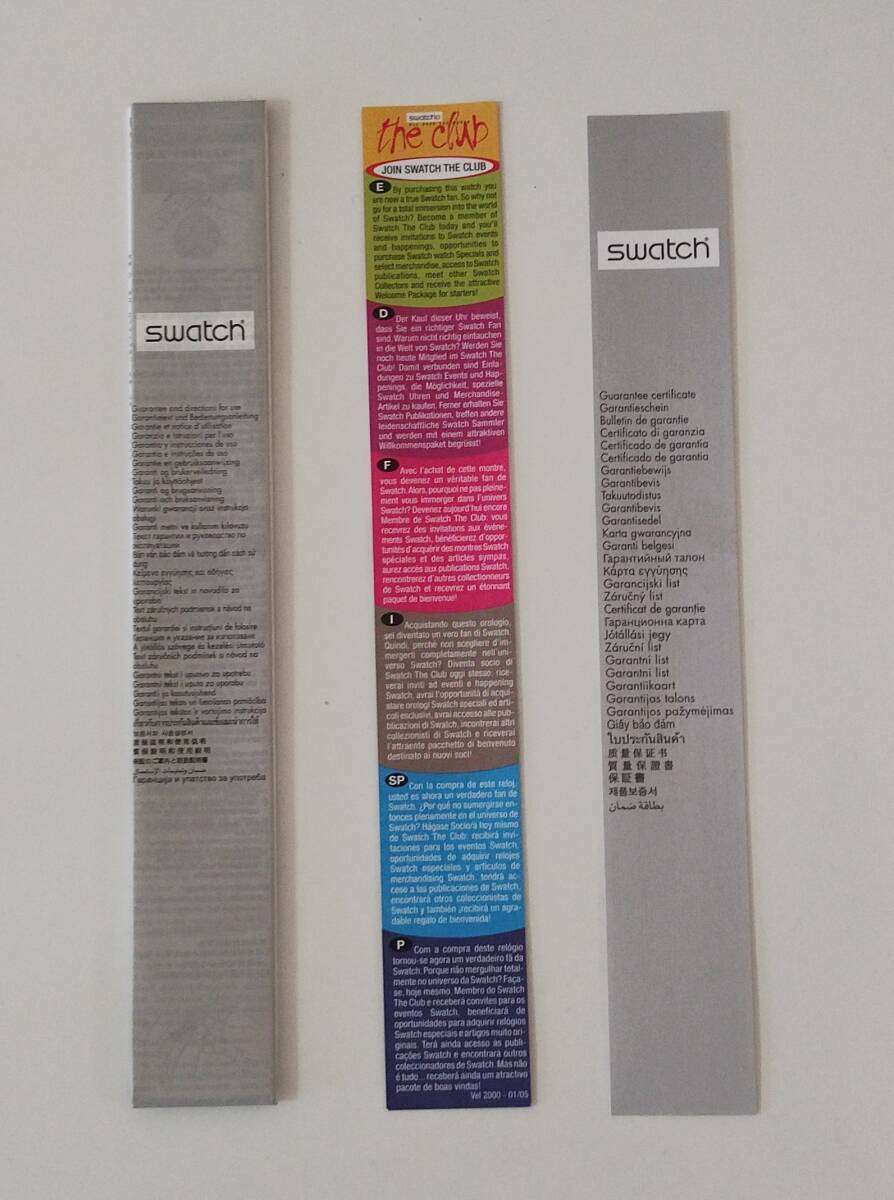 swatch
Guarantee and directions for use
Garantietext und Bedienungsanleitung
Garantie et notice d'utilisation
Garanzia e istruzioni per l'uso
Garantía y instrucciones de uso
Garantia e instruções de uso
Garantie en gebruiksaanwijzing
Garanti og brukerveiledning
Takuu ja käyttöohjeet
Garanti og brugsanvisning
Garanti och bruksanvisning
Warunki gwarancji oraz instrukcja
obsługi
Garanti metni ve kullanım kılavuzu
Текст гарантии и руководство по
эксплуатации
Bản văn bảo đảm và hướng dẫn cách sử
dụng
Κείμενο εγγύησης και οδηγίες
λειτουργίας
Garancijski tekst in navodilo za
uporabo
Text záručných podmienok a návod na
obsluhu
Textul garanţiei şi instrucţiuni de folosire
Гаранция и указание за използване
A jótállás szövege és kezelési útmutató
Text záručních podmínek a návod na
obsluhu
Garantni tekst i uputstvo za upotrebu
Garantni tekst i uputa za uporabu
Garantii ja kasutusjuhend
Garantijas teksts un lietošanas pamācība
Garantijos tekstas ir vartojimo instrukcija
보증서와 사용설명서
质量证明和使用说明
質保說明和使用說明
保証のご案内と取扱説明書
ضمان وتعليمات الإستعمال
Гаранција и упатство за употреба
swatch
the club
JOIN SWATCH THE CLUB
E By purchasing this watch you
are now a true Swatch fan. So why not
go for a total immersion into the world
of Swatch? Become a member of
Swatch The Club today and you'll
receive invitations to Swatch events
and happenings, opportunities to
purchase Swatch watch Specials and
select merchandise, access to Swatch
publications, meet other Swatch
Collectors and receive the attractive
Welcome Package for starters!
D Der Kauf dieser Uhr beweist,
dass Sie ein richtiger Swatch Fan
sind. Warum nicht richtig eintauchen
in die Welt von Swatch? Werden Sie
noch heute Mitglied im Swatch The
Club! Damit verbunden sind Einla-
dungen zu Swatch Events und Hap-
penings, die Möglichkeit, spezielle
Swatch Uhren und Merchandise-
Artikel zu kaufen. Ferner erhalten Sie
Swatch Publikationen, treffen andere
leidenschaftliche Swatch Sammler
und werden mit einem attraktiven
Willkommenspaket begrüsst!
F Avec l'achat de cette montre,
vous devenez un véritable fan de
Swatch. Alors, pourquoi ne pas pleine-
ment vous immerger dans l'univers
Swatch? Devenez aujourd'hui encore
Membre de Swatch The Club: vous
recevrez des invitations aux événe-
ments Swatch, bénéficierez d'oppor-
tunités d'acquérir des montres Swatch
spéciales et des articles sympas,
aurez accès aux publications Swatch,
rencontrerez d'autres collectionneurs
de Swatch et recevrez un étonnant
paquet de bienvenue!
I Acquistando questo orologio,
sei diventato un vero fan di Swatch.
Quindi, perché non scegliere d'im-
mergerti completamente nell'uni-
verso Swatch? Diventa socio di
Swatch The Club oggi stesso: rice-
verai inviti ad eventi e happening
Swatch, avrai l'opportunità di acqui-
stare orologi Swatch speciali ed arti-
coli esclusivi, avrai accesso alle pub-
blicazioni di Swatch, incontrerai altri
collezionisti di Swatch e riceverai
l'attraente pacchetto di benvenuto
destinato ai nuovi soci!
SP Con la compra de este reloj,
usted es ahora un verdadero fan de
Swatch. ¿Por qué no sumergirse en-
tonces plenamente en el universo de
Swatch? Hágase Socio/a hoy mismo
de Swatch The Club: recibirá invi-
taciones para los eventos Swatch,
oportunidades de adquirir relojes
Swatch especiales y artículos de
merchandising Swatch, tendrá ac-
ceso a las publicaciones de Swatch,
encontrará otros coleccionistas de
Swatch y también ¡recibirá un agra-
dable regalo de bienvenida!
P Com a compra deste relógio
tornou-se agora um verdadeiro fã da
Swatch. Porque não mergulhar total-
mente no universo da Swatch? Faça-
se, hoje mesmo, Membro do Swatch
The Club e receberá convites para os
eventos Swatch, beneficiará de
oportunidades para adquirir relógios
Swatch especiais e artigos muito ori-
ginais. Terá ainda acesso às publi-
cações Swatch e encontrará outros
coleccionadores de Swatch. Mas não
é tudo... receberá ainda um atractivo
pacote de boas vindas!
Vel 2000 - 01/05
swatch
Guarantee certificate
Garantieschein
Bulletin de garantie
Certificato di garanzia
Certificado de garantía
Certificado de garantia
Garantiebewijs
Garantibevis
Takuutodistus
Garantibevis
Garantisedel
Karta gwarancyjna
Garanti belgesi
Гарантийный талон
Κάρτα εγγύησης
Garancijski list
Záručný list
Certificat de garanţie
Гаранционна карта
Jótállási jegy
Záruční list
Garantni list
Garantni list
Garantiikaart
Garantijas talons
Garantijos pažymėjimas
Giấy bảo đảm
ใบประกันสินค้า
质量保证书
質量保證書
保証書
제품보증서
بطاقة ضمان